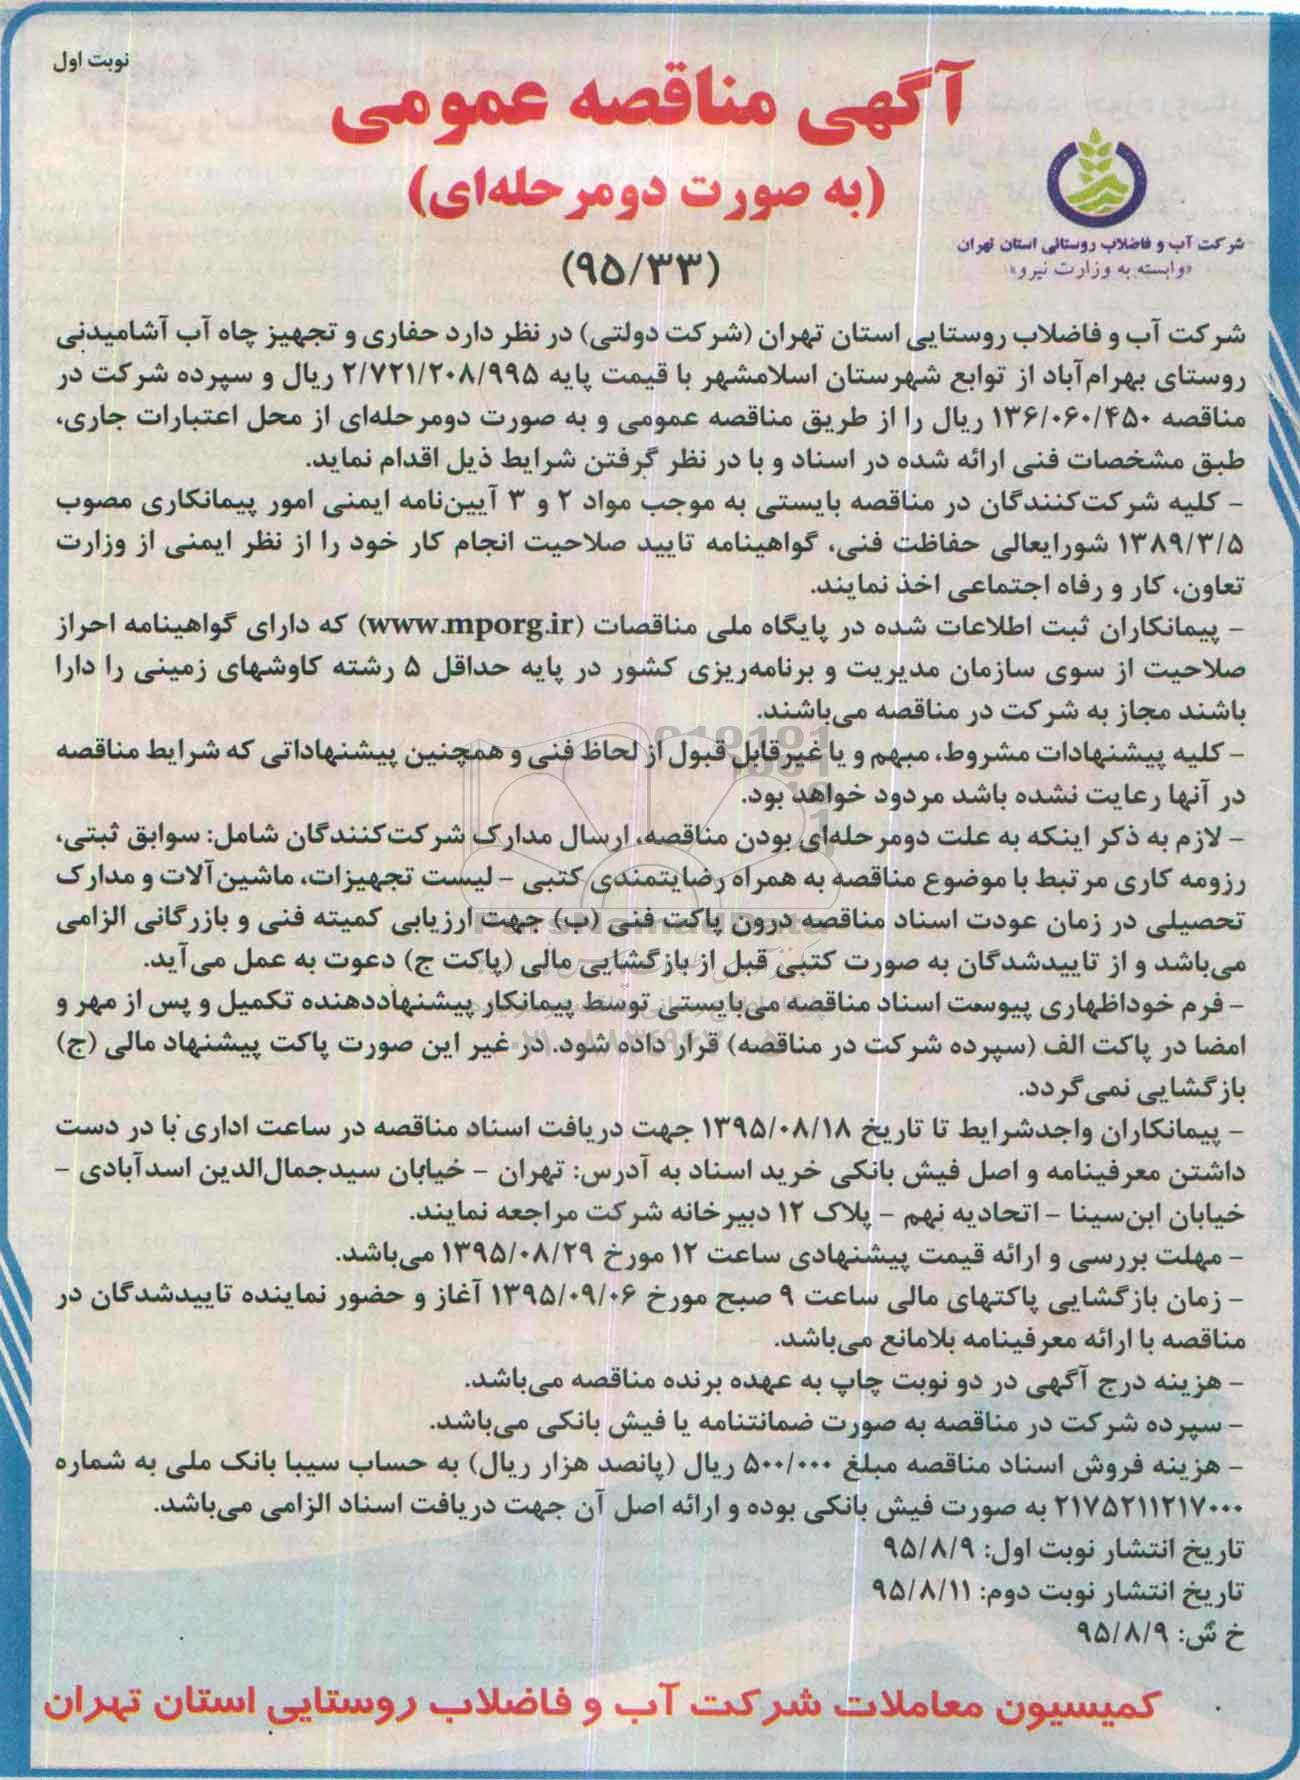 نوبت اول
آگهی مناقصه عمومی
(به صورت دومرحله‌ای)
(۹۵/۳۳)
شرکت آب و فاضلاب روستائی استان تهران
«وابسته به وزارت نیرو»
شرکت آب و فاضلاب روستایی استان تهران (شرکت دولتی) در نظر دارد حفاری و تجهیز چاه آب آشامیدنی
روستای بهرام‌آباد از توابع شهرستان اسلامشهر با قیمت پایه ۲/۷۲۱/۲۰۸/۹۹۵ ریال و سپرده شرکت در
مناقصه ۱۳۶/۰۶۰/۴۵۰ ریال را از طریق مناقصه عمومی و به صورت دومرحله‌ای از محل اعتبارات جاری،
طبق مشخصات فنی ارائه شده در اسناد و با در نظر گرفتن شرایط ذیل اقدام نماید.
- کلیه شرکت‌کنندگان در مناقصه بایستی به موجب مواد ۲ و ۳ آیین‌نامه ایمنی امور پیمانکاری مصوب
۱۳۸۹/۳/۵ شورایعالی حفاظت فنی، گواهینامه تایید صلاحیت انجام کار خود را از نظر ایمنی از وزارت
تعاون، کار و رفاه اجتماعی اخذ نمایند.
- پیمانکاران ثبت اطلاعات شده در پایگاه ملی مناقصات (www.mporg.ir) که دارای گواهینامه احراز
صلاحیت از سوی سازمان مدیریت و برنامه‌ریزی کشور در پایه حداقل ۵ رشته کاوشهای زمینی را دارا
باشند مجاز به شرکت در مناقصه می‌باشند.
- کلیه پیشنهادات مشروط، مبهم و یا غیرقابل قبول از لحاظ فنی و همچنین پیشنهاداتی که شرایط مناقصه
در آنها رعایت نشده باشد مردود خواهد بود.
- لازم به ذکر اینکه به علت دومرحله‌ای بودن مناقصه، ارسال مدارک شرکت‌کنندگان شامل: سوابق ثبتی،
رزومه کاری مرتبط با موضوع مناقصه به همراه رضایتمندی کتبی - لیست تجهیزات، ماشین‌آلات و مدارک
تحصیلی در زمان عودت اسناد مناقصه درون پاکت فنی (ب) جهت ارزیابی کمیته فنی و بازرگانی الزامی
می‌باشد و از تاییدشدگان به صورت کتبی قبل از بازگشایی مالی (پاکت ج) دعوت به عمل می‌آید.
- فرم خوداظهاری پیوست اسناد مناقصه می‌بایستی توسط پیمانکار پیشنهاددهنده تکمیل و پس از مهر و
امضا در پاکت الف (سپرده شرکت در مناقصه) قرار داده شود. در غیر این صورت پاکت پیشنهاد مالی (ج)
بازگشایی نمی‌گردد.
- پیمانکاران واجدشرایط تا تاریخ ۱۳۹۵/۰۸/۱۸ جهت دریافت اسناد مناقصه در ساعت اداری با در دست
داشتن معرفینامه و اصل فیش بانکی خرید اسناد به آدرس: تهران - خیابان سیدجمال‌الدین اسدآبادی -
خیابان ابن‌سینا - اتحادیه نهم - پلاک ۱۲ دبیرخانه شرکت مراجعه نمایند.
- مهلت بررسی و ارائه قیمت پیشنهادی ساعت ۱۲ مورخ ۱۳۹۵/۰۸/۲۹ می‌باشد.
- زمان بازگشایی پاکتهای مالی ساعت ۹ صبح مورخ ۱۳۹۵/۰۹/۰۶ آغاز و حضور نماینده تاییدشدگان در
مناقصه با ارائه معرفینامه بلامانع می‌باشد.
- هزینه درج آگهی در دو نوبت چاپ به عهده برنده مناقصه می‌باشد.
- سپرده شرکت در مناقصه به صورت ضمانتنامه یا فیش بانکی می‌باشد.
- هزینه فروش اسناد مناقصه مبلغ ۵۰۰/۰۰۰ ریال (پانصد هزار ریال) به حساب سیبا بانک ملی به شماره
۲۱۷۵۲۱۱۲۱۷۰۰۰ به صورت فیش بانکی بوده و ارائه اصل آن جهت دریافت اسناد الزامی می‌باشد.
تاریخ انتشار نوبت اول: ۹۵/۸/۹
تاریخ انتشار نوبت دوم: ۹۵/۸/۱۱
خ ش: ۹۵/۸/۹
کمیسیون معاملات شرکت آب و فاضلاب روستایی استان تهران